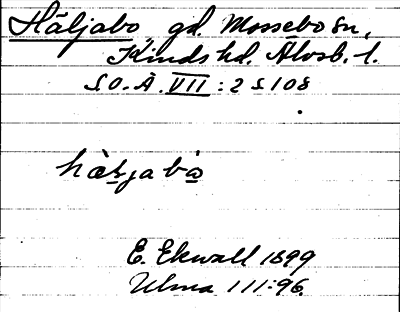 Häljabo, gd. Mossebo sn,
Kinds hd. Älvsb. l.
S.O.Ä. VII : 2 s 108
hàljabò
E. Ekwall 1899
Ulma 111:96.